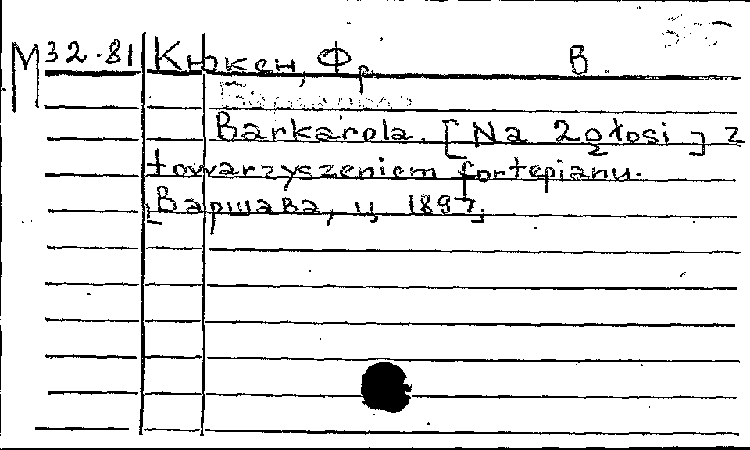 М 32-81 Кюкен, Фр. В
Barkarola. [Na 2 głosi] z
towarzyszeniem fortepianu.
[Варшава, ц. 1897].